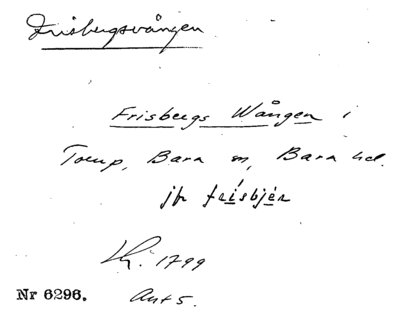 Frisbergsvången
Frisbergs Wången i
Torup, Bara sn, Bara hd.
jfr frisbjér
Kh. 1799
Nr 6296. Akt 5.